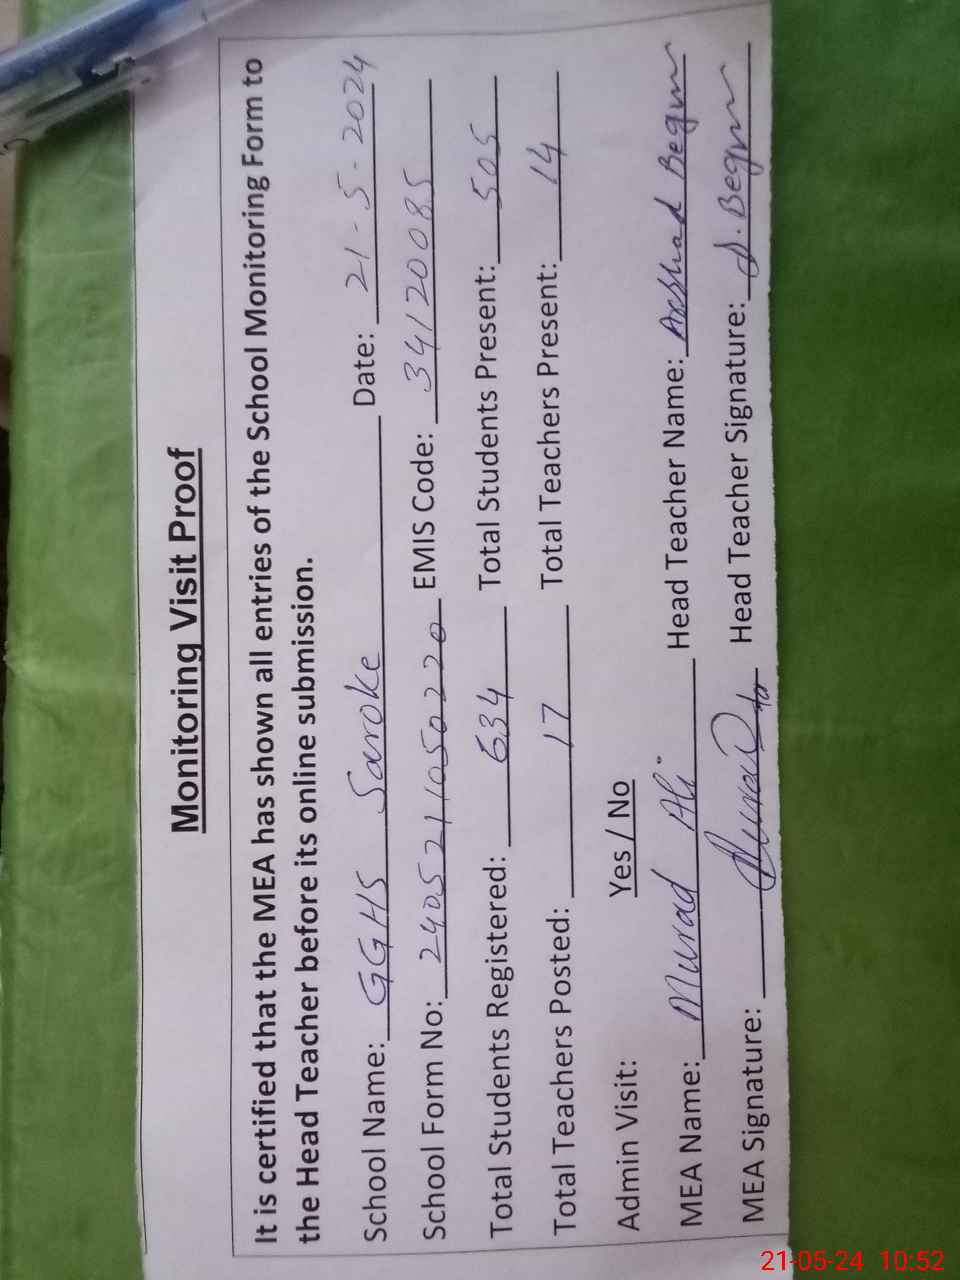 Monitoring Visit Proof
It is certified that the MEA has shown all entries of the School Monitoring Form to
the Head Teacher before its online submission.
School Name: GGHS Saroke Date: 21-5-2024
School Form No: 2405211050220 EMIS Code: 34120085
Total Students Registered: 634 Total Students Present: 505
Total Teachers Posted: 17 Total Teachers Present: 14
Admin Visit: Yes / No
MEA Name: Murad Ali Head Teacher Name: Arshad Begum
MEA Signature: Murad Head Teacher Signature: A. Begum
21-05-24 10:52